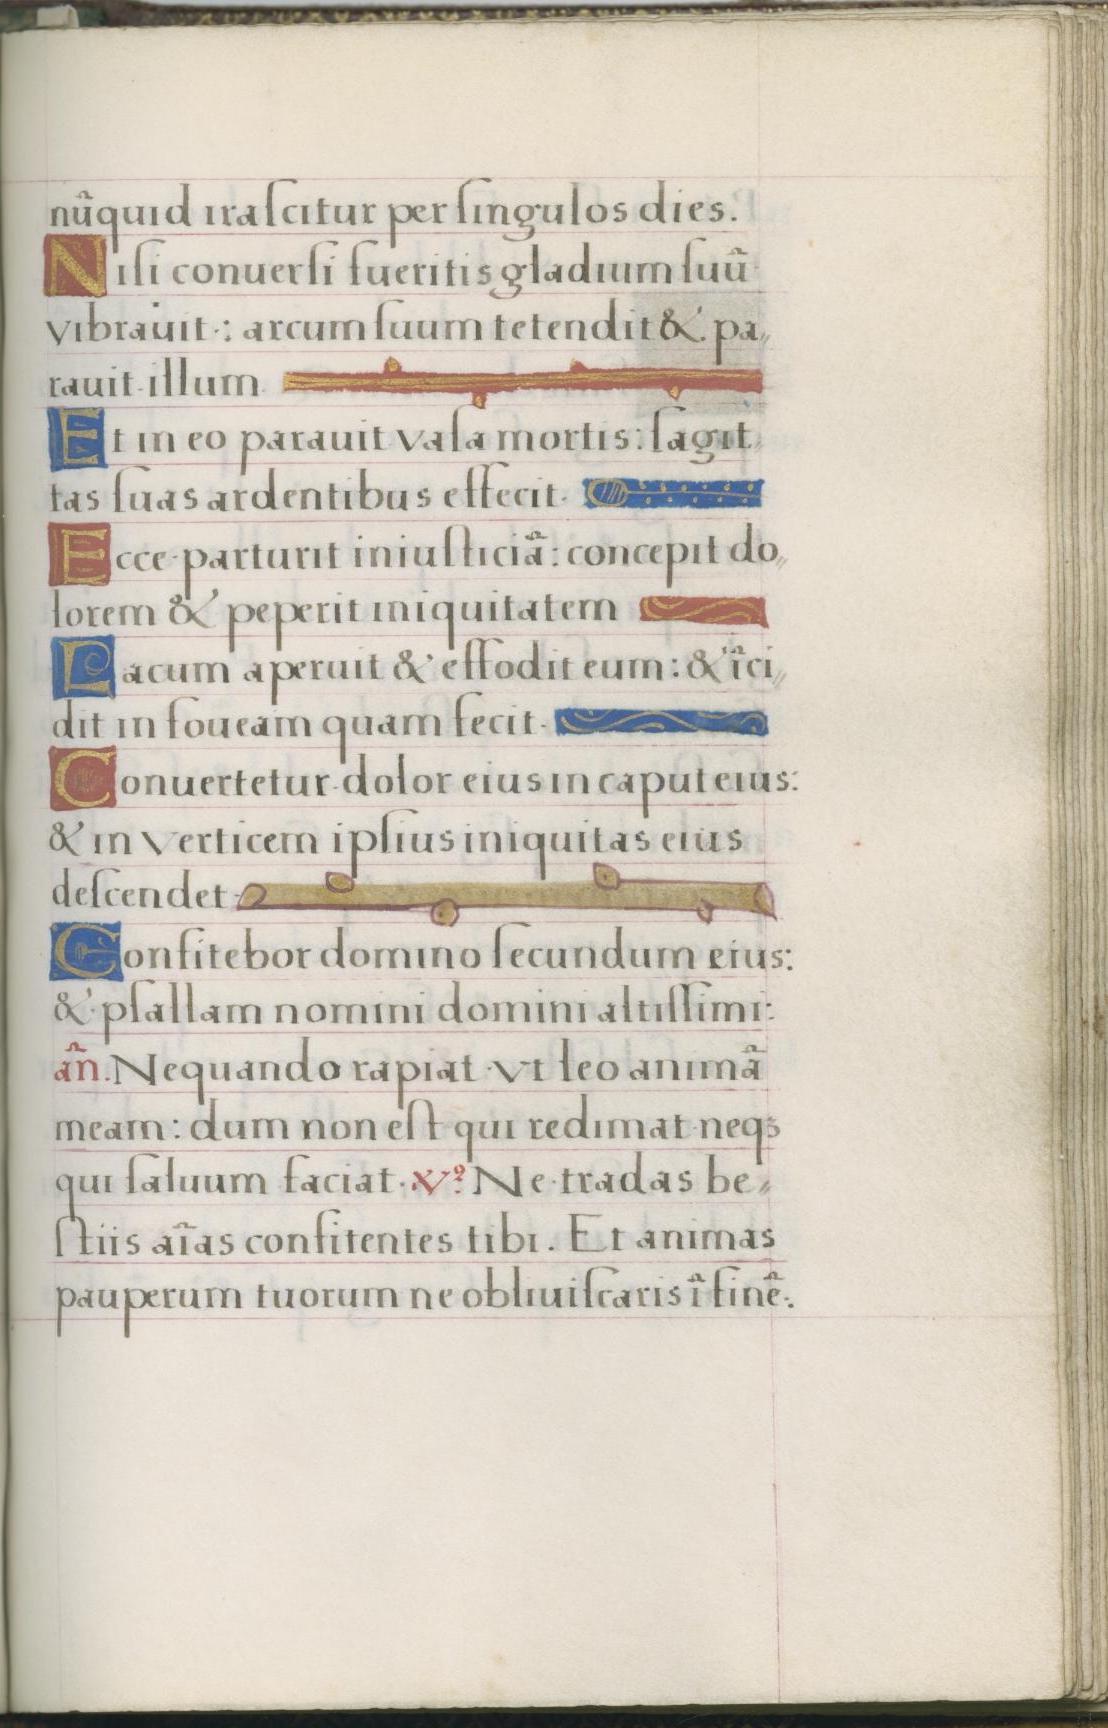 nũquid iraſcitur per ſingulos dies.
Niſi conuerſi fueritis gladium ſuũ
vibrauit·: arcum ſuum tetendit & pa„
rauit illum
Et in eo parauit vaſa mortis: ſagit„
tas ſuas ardentibus effecit·
Ecce parturit iniuſticiã: concepit do„
lorem & peperit iniquitatem
Lacum aperuit & effodit eum: & ĩci„
dit in foueam quam fecit·
Conuertetur dolor eius in caput eius:
& in verticem ipſius iniquitas eius
deſcendet·
Confitebor domino ſecundum eius:
& pſallam nomini domini altiſſimi:
añ. Nequando rapiat vt leo animã
meam: dum non eſt qui redimat neqꝫ
qui ſaluum faciat· ℣º. Ne tradas be„
ſtiis aĩas confitentes tibi. Et animas
pauperum tuorum ne obliuiſcaris ĩ finẽ·.